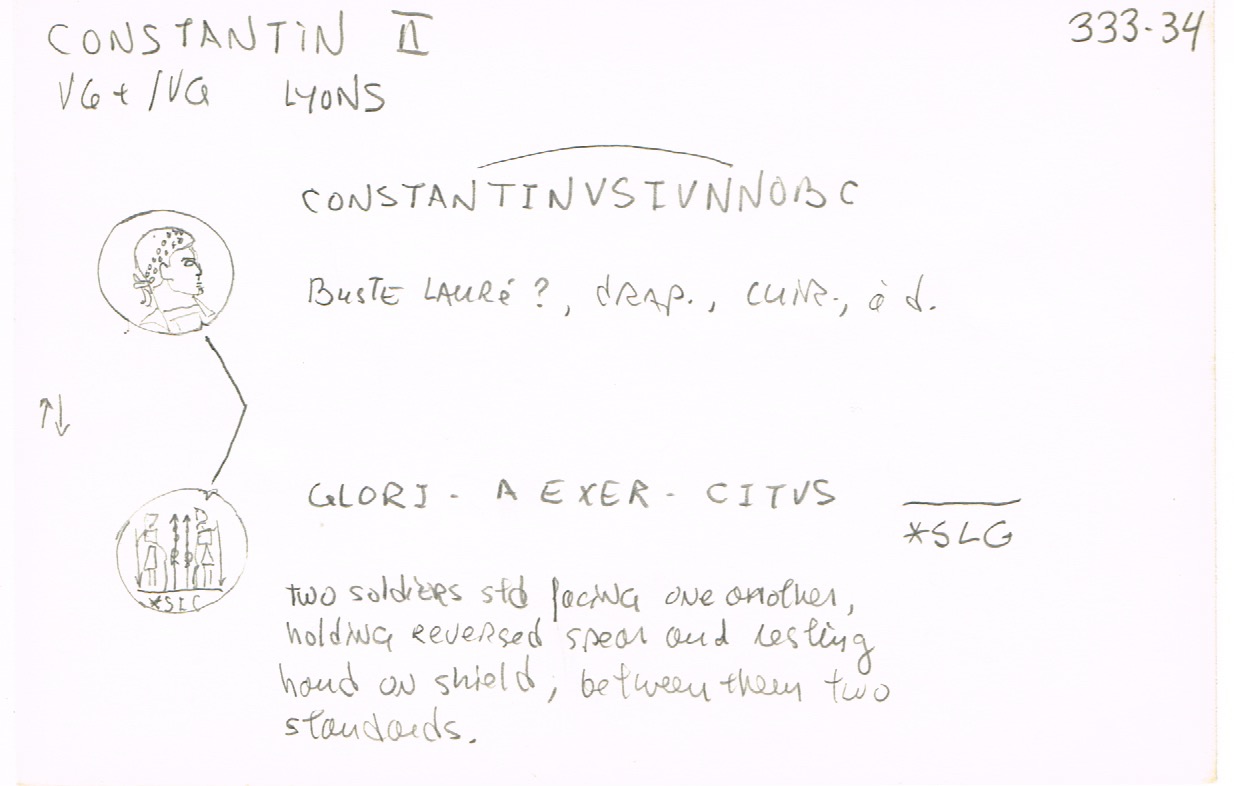 CONSTANTIN II 333-34
VG+/VG LYONS
CONSTANTINVSIVNNOBC
BUSTE LAURé ?, dRAP., CUIR., à d.
↑↓
GLORI - A EXER - CITVS
*SLG
*SLC
two soldiers std facing one another,
holding reversed spear and resting
hand on shield, between them two
standards.